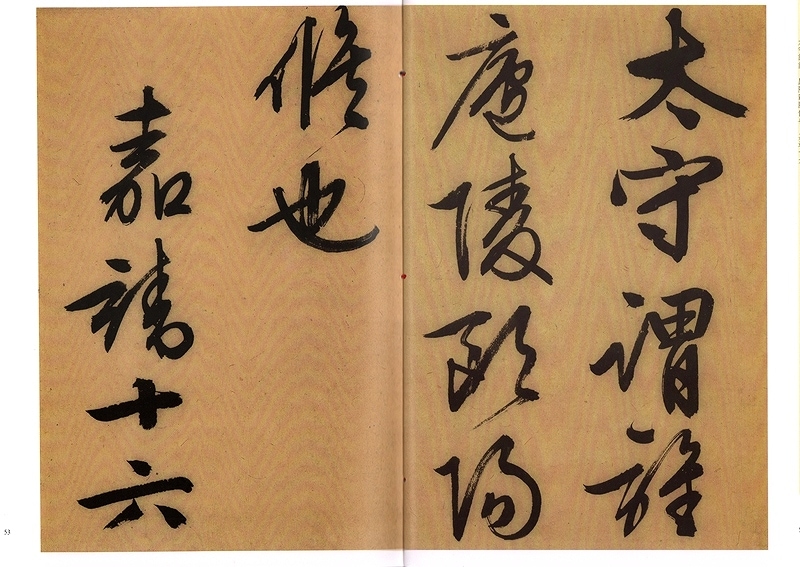 太守謂誰
廬陵歐陽
脩也
嘉靖十六
53